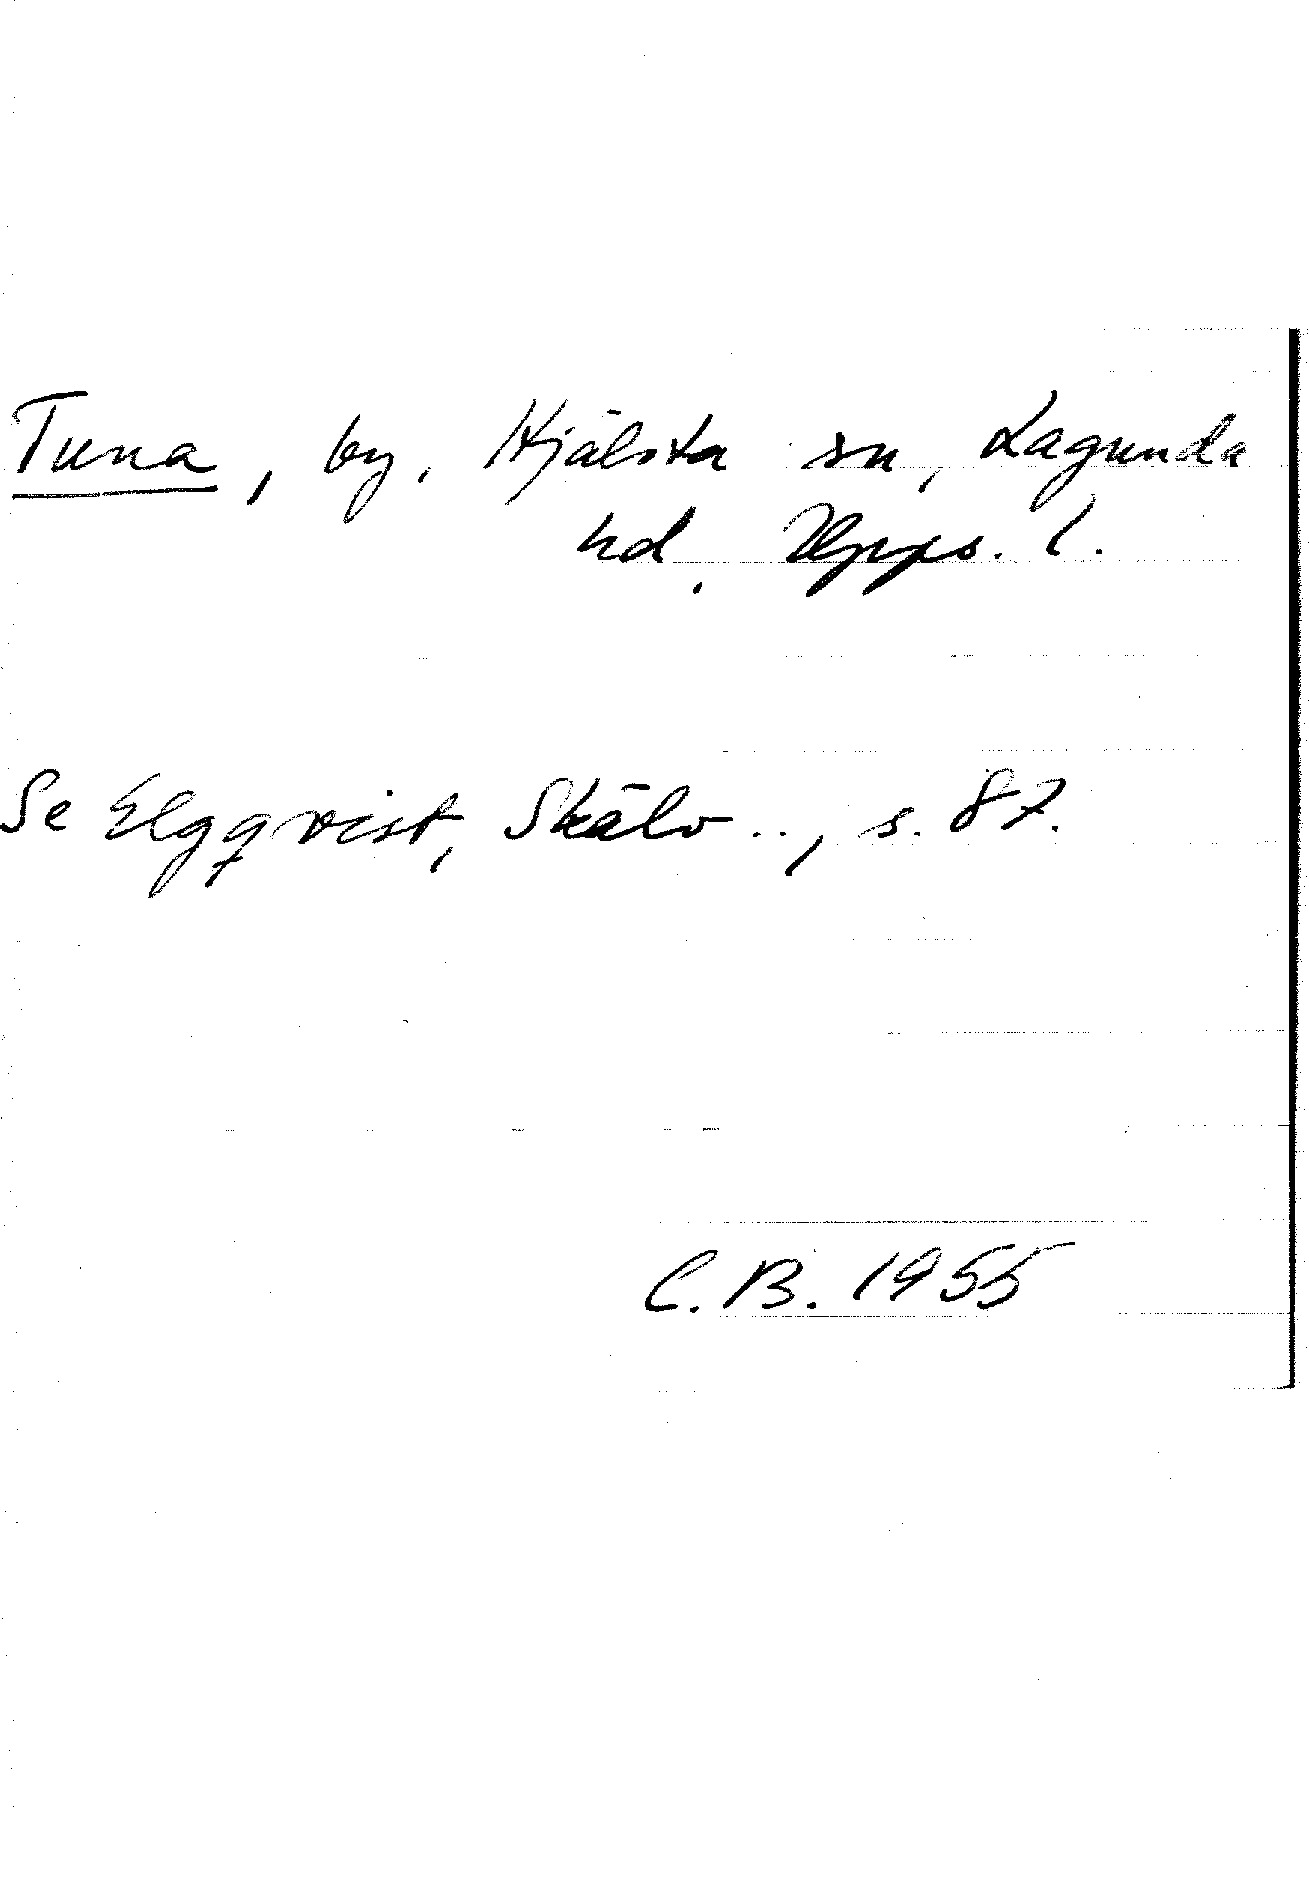 Tuna, by, Hjälsta sn, Lagunda
hd, Upps. l.
Se Elgqvist, Skälv .., s. 87.
C.B. 1955